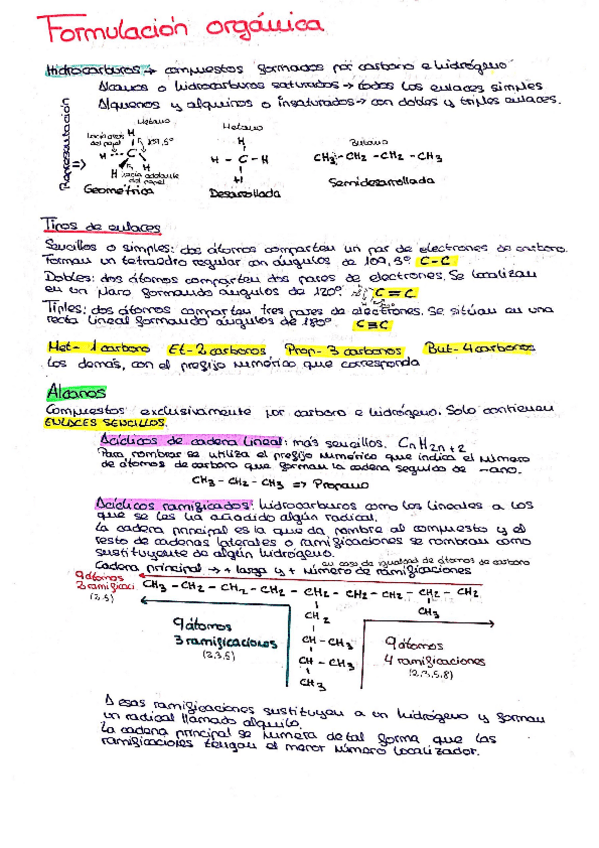 Formulación orgánica
Hidrocarburos → compuestos formados por carbono e hidrógeno
Alcanos o hidrocarburos saturados → todos los enlaces simples
Alquenos y alquinos o insaturados → con dobles y triples enlaces.
Representación =>
Metano
H
C
H
H
H
hacia adelante del papel
Geométrica
Metano
H
H - C - H
H
Desarrollada
Butano
CH3 - CH2 - CH2 - CH3
Semidesarrollada
Tipos de enlaces
Sencillos o simples: dos átomos comparten un par de electrones de carbono.
Forman un tetraedro regular con ángulos de 109,5º C - C
Dobles: dos átomos comparten dos pares de electrones. Se localizan
en un plano formando ángulos de 120º. C = C
Triples: dos átomos comparten tres pares de electrones. Se sitúan en una
recta lineal formando ángulos de 180º. C≡C
Met- 1 carbono Et- 2 carbonos Prop- 3 carbonos But- 4 carbonos
Los demás, con el prefijo numérico que corresponda
Alcanos
Compuestos exclusivamente por carbono e hidrógeno. Solo contienen
ENLACES SENCILLOS.
Acíclicos de cadena lineal: más sencillos. CnH2n+2
Para nombrar se utiliza el prefijo numérico que indica el número
de átomos de carbono que forman la cadena seguido de -ano.
CH3 - CH2 - CH3 => Propano
Acíclicos ramificados: hidrocarburos como los lineales a los
que se les ha añadido algún radical.
La cadena principal es la que da nombre al compuesto y el
resto de cadenas laterales o ramificaciones se nombran como
sustituyente de algún hidrógeno.
en caso de igualdad de átomos de carbono
Cadena principal → + larga y + número de ramificaciones
9 átomos
2 ramificaci
CH3 - CH2 - CH2 - CH2 - CH2 - CH2 - CH2 - CH2 - CH2
CH2
CH3
CH - CH3
CH - CH3
CH3
9 átomos
3 ramificaciones
(2,3,5)
9 átomos
4 ramificaciones
(2,3,5,8)
A esas ramificaciones sustituyen a un hidrógeno y forman
un radical llamado alquilo.
La cadena principal se numera de tal forma que las
ramificaciones tengan el menor número localizador.